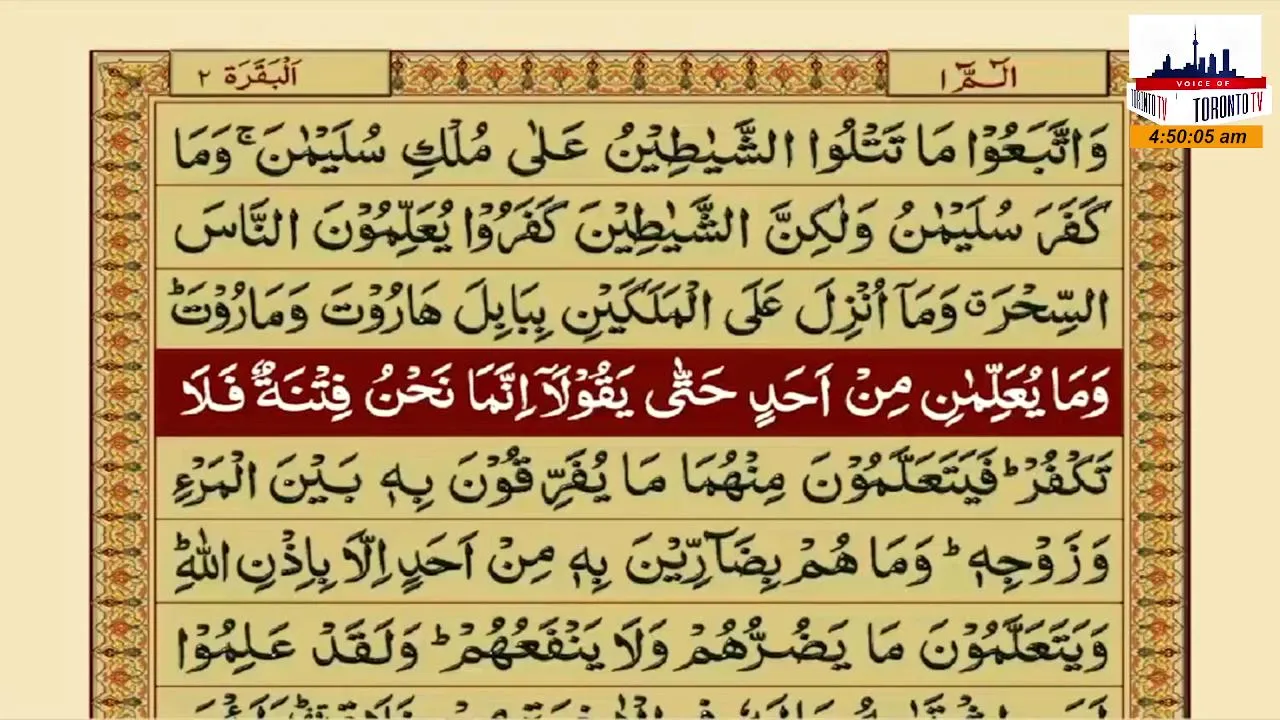 الٓـمّٓ ١
اَلْبَقَرَة ٢
VOICE OF
TORONTO TV
TORONTO TV
4:50:05 am
وَاتَّبَعُوْا مَا تَتْلُوا الشَّيٰطِيْنُ عَلٰى مُلْكِ سُلَيْمٰنَ ۚ وَمَا
كَفَرَ سُلَيْمٰنُ وَلٰكِنَّ الشَّيٰطِيْنَ كَفَرُوْا يُعَلِّمُوْنَ النَّاسَ
السِّحْرَ ۗ وَمَآ اُنْزِلَ عَلَى الْمَلَكَيْنِ بِبَابِلَ هَارُوْتَ وَمَارُوْتَ ؕ
وَمَا يُعَلِّمٰنِ مِنْ اَحَدٍ حَتّٰى يَقُوْلَاۤ اِنَّمَا نَحْنُ فِتْنَةٌ فَلَا
تَكْفُرْ ؕ فَيَتَعَلَّمُوْنَ مِنْهُمَا مَا يُفَرِّقُوْنَ بِهٖ بَيْنَ الْمَرْءِ
وَزَوْجِهٖ ؕ وَمَا هُمْ بِضَآرِّيْنَ بِهٖ مِنْ اَحَدٍ اِلَّا بِاِذْنِ اللّٰهِ ؕ
وَيَتَعَلَّمُوْنَ مَا يَضُرُّهُمْ وَلَا يَنْفَعُهُمْ ؕ وَلَقَدْ عَلِمُوْا